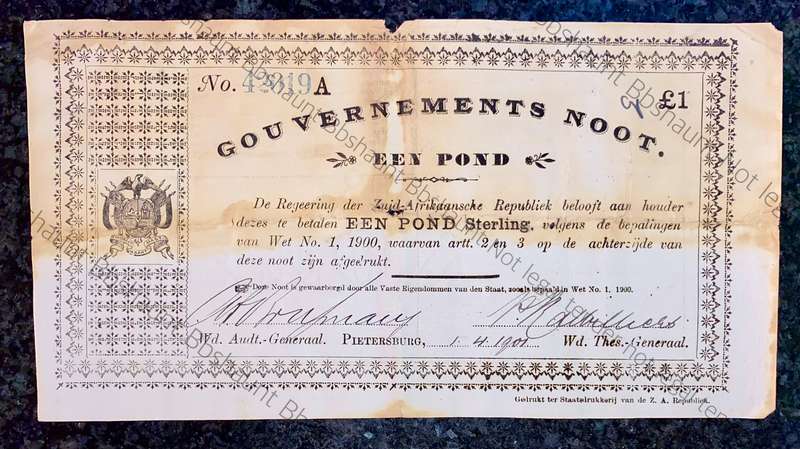 No. 42819 A £1
GOUVERNEMENTS NOOT.
EEN POND
De Regeering der Zuid-Afrikaansche Republiek belooft aan houder
dezes te betalen EEN POND Sterling, volgens de bepalingen
van Wet No. 1, 1900, waarvan artt. 2 en 3 op de achterzijde van
deze noot zijn afgedrukt.
Deze Noot is gewaarborgd door alle Vaste Eigendommen van den Staat, zooals bepaald in Wet No. 1, 1900.
Wd. Audt.-Generaal. PIETERSBURG, 1.4.1901 Wd. Thes.-Generaal.
Gedrukt ter Staatsdrukkerij van de Z. A. Republiek.
Bbshaunt Not legal tender